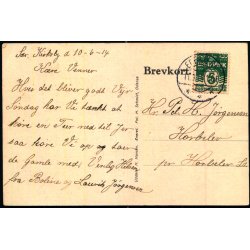 Sdr. Kirkeby d 10-6-14
Kære Venner
Hvis det bliver godt Vejr
Søndag har Vi tænkt at
køre en Tur med det Jer
saa køre Vi op og har
de Gamle med. Venlig Hilsen
fra Boline og Laurids Jørgensen
Brevkort.
Hr. P. H. Jørgensen
Horbelev
pr Horbelev St.